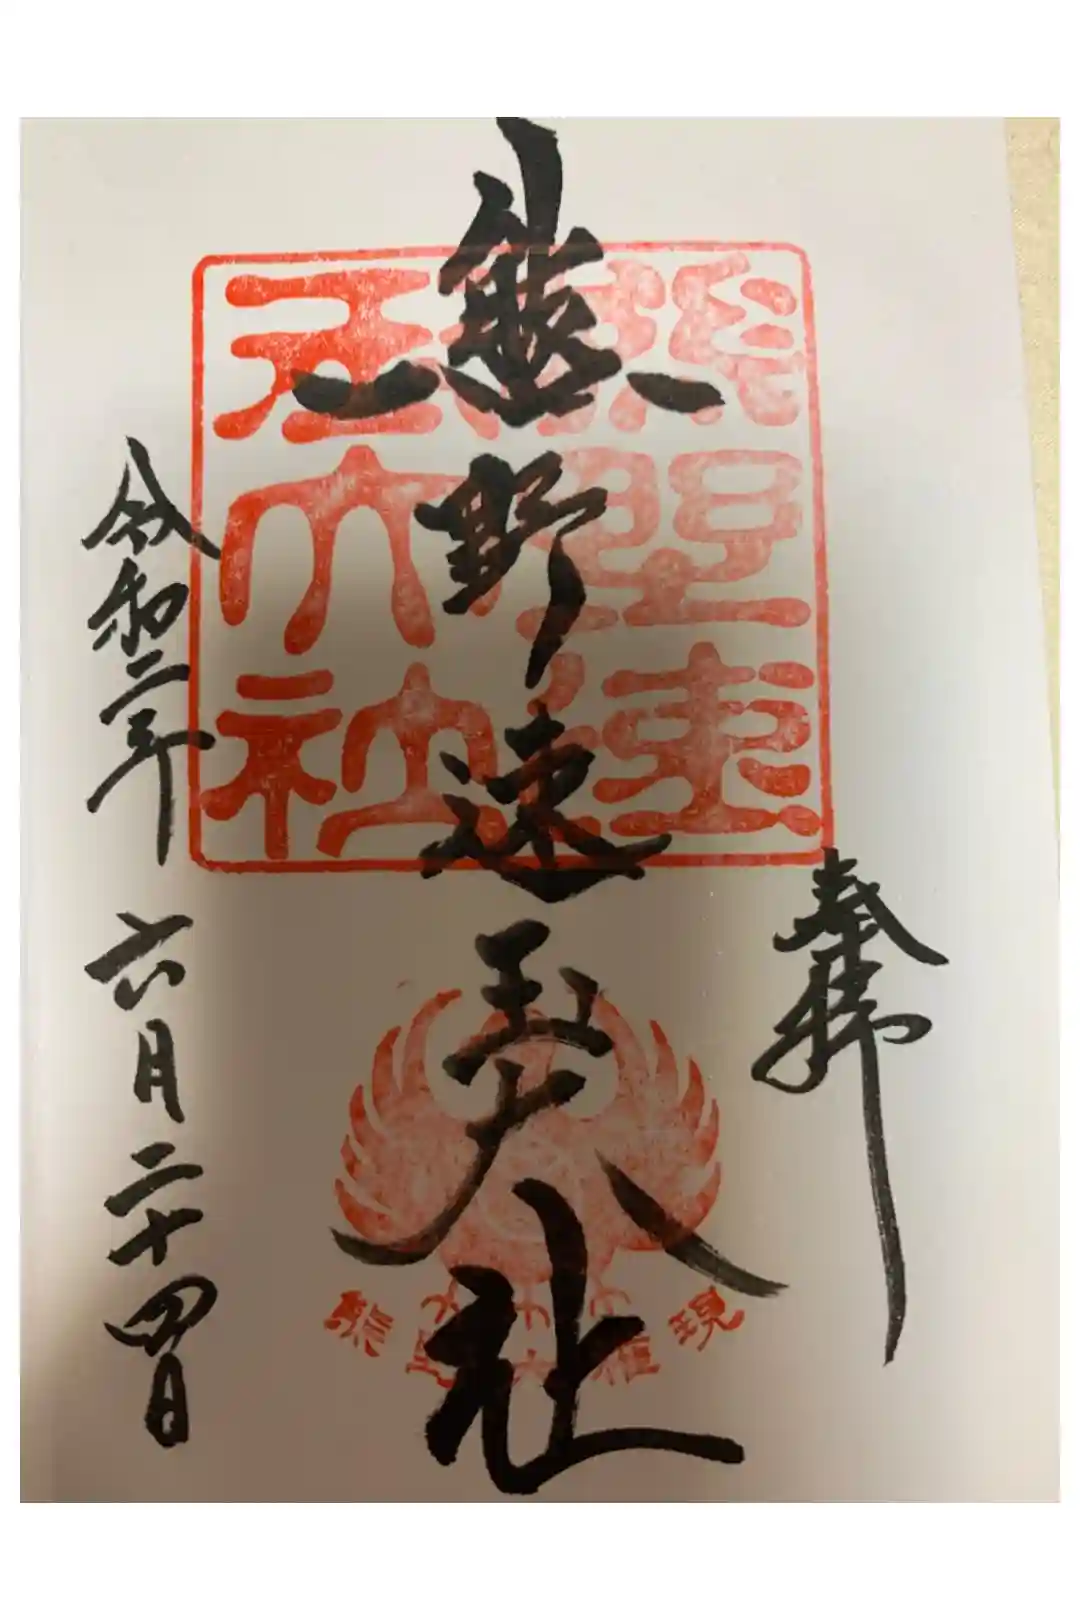 奉拝
熊野速玉大社
令和二年六月二十四日
熊野速玉大社
熊野大権現